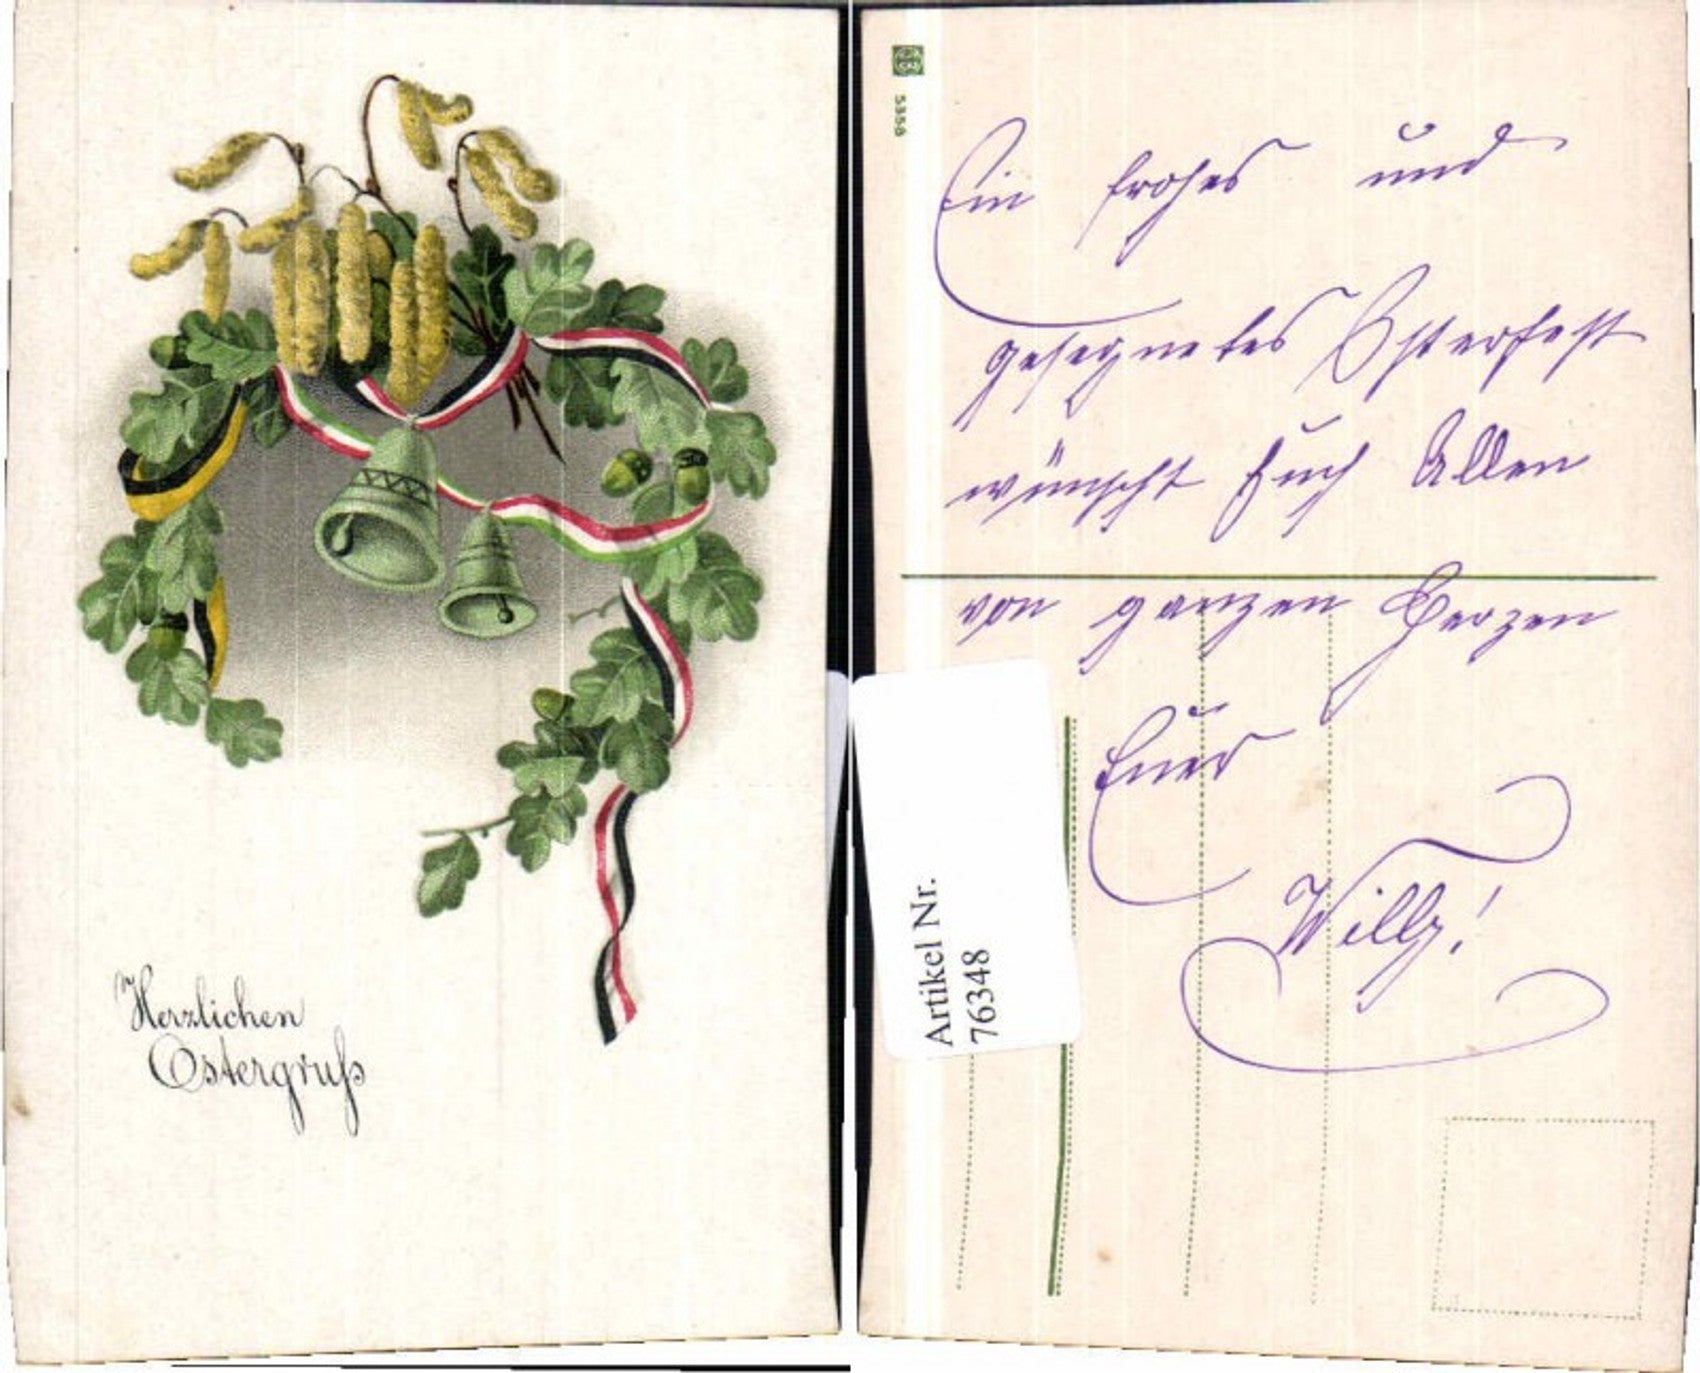 Herzlichen
Ostergruß
5358
Ein frohes und
gesegnetes Osterfest
wünscht Euch Allen
von ganzen Herzen
Euer
Willy!
Artikel Nr.
76348